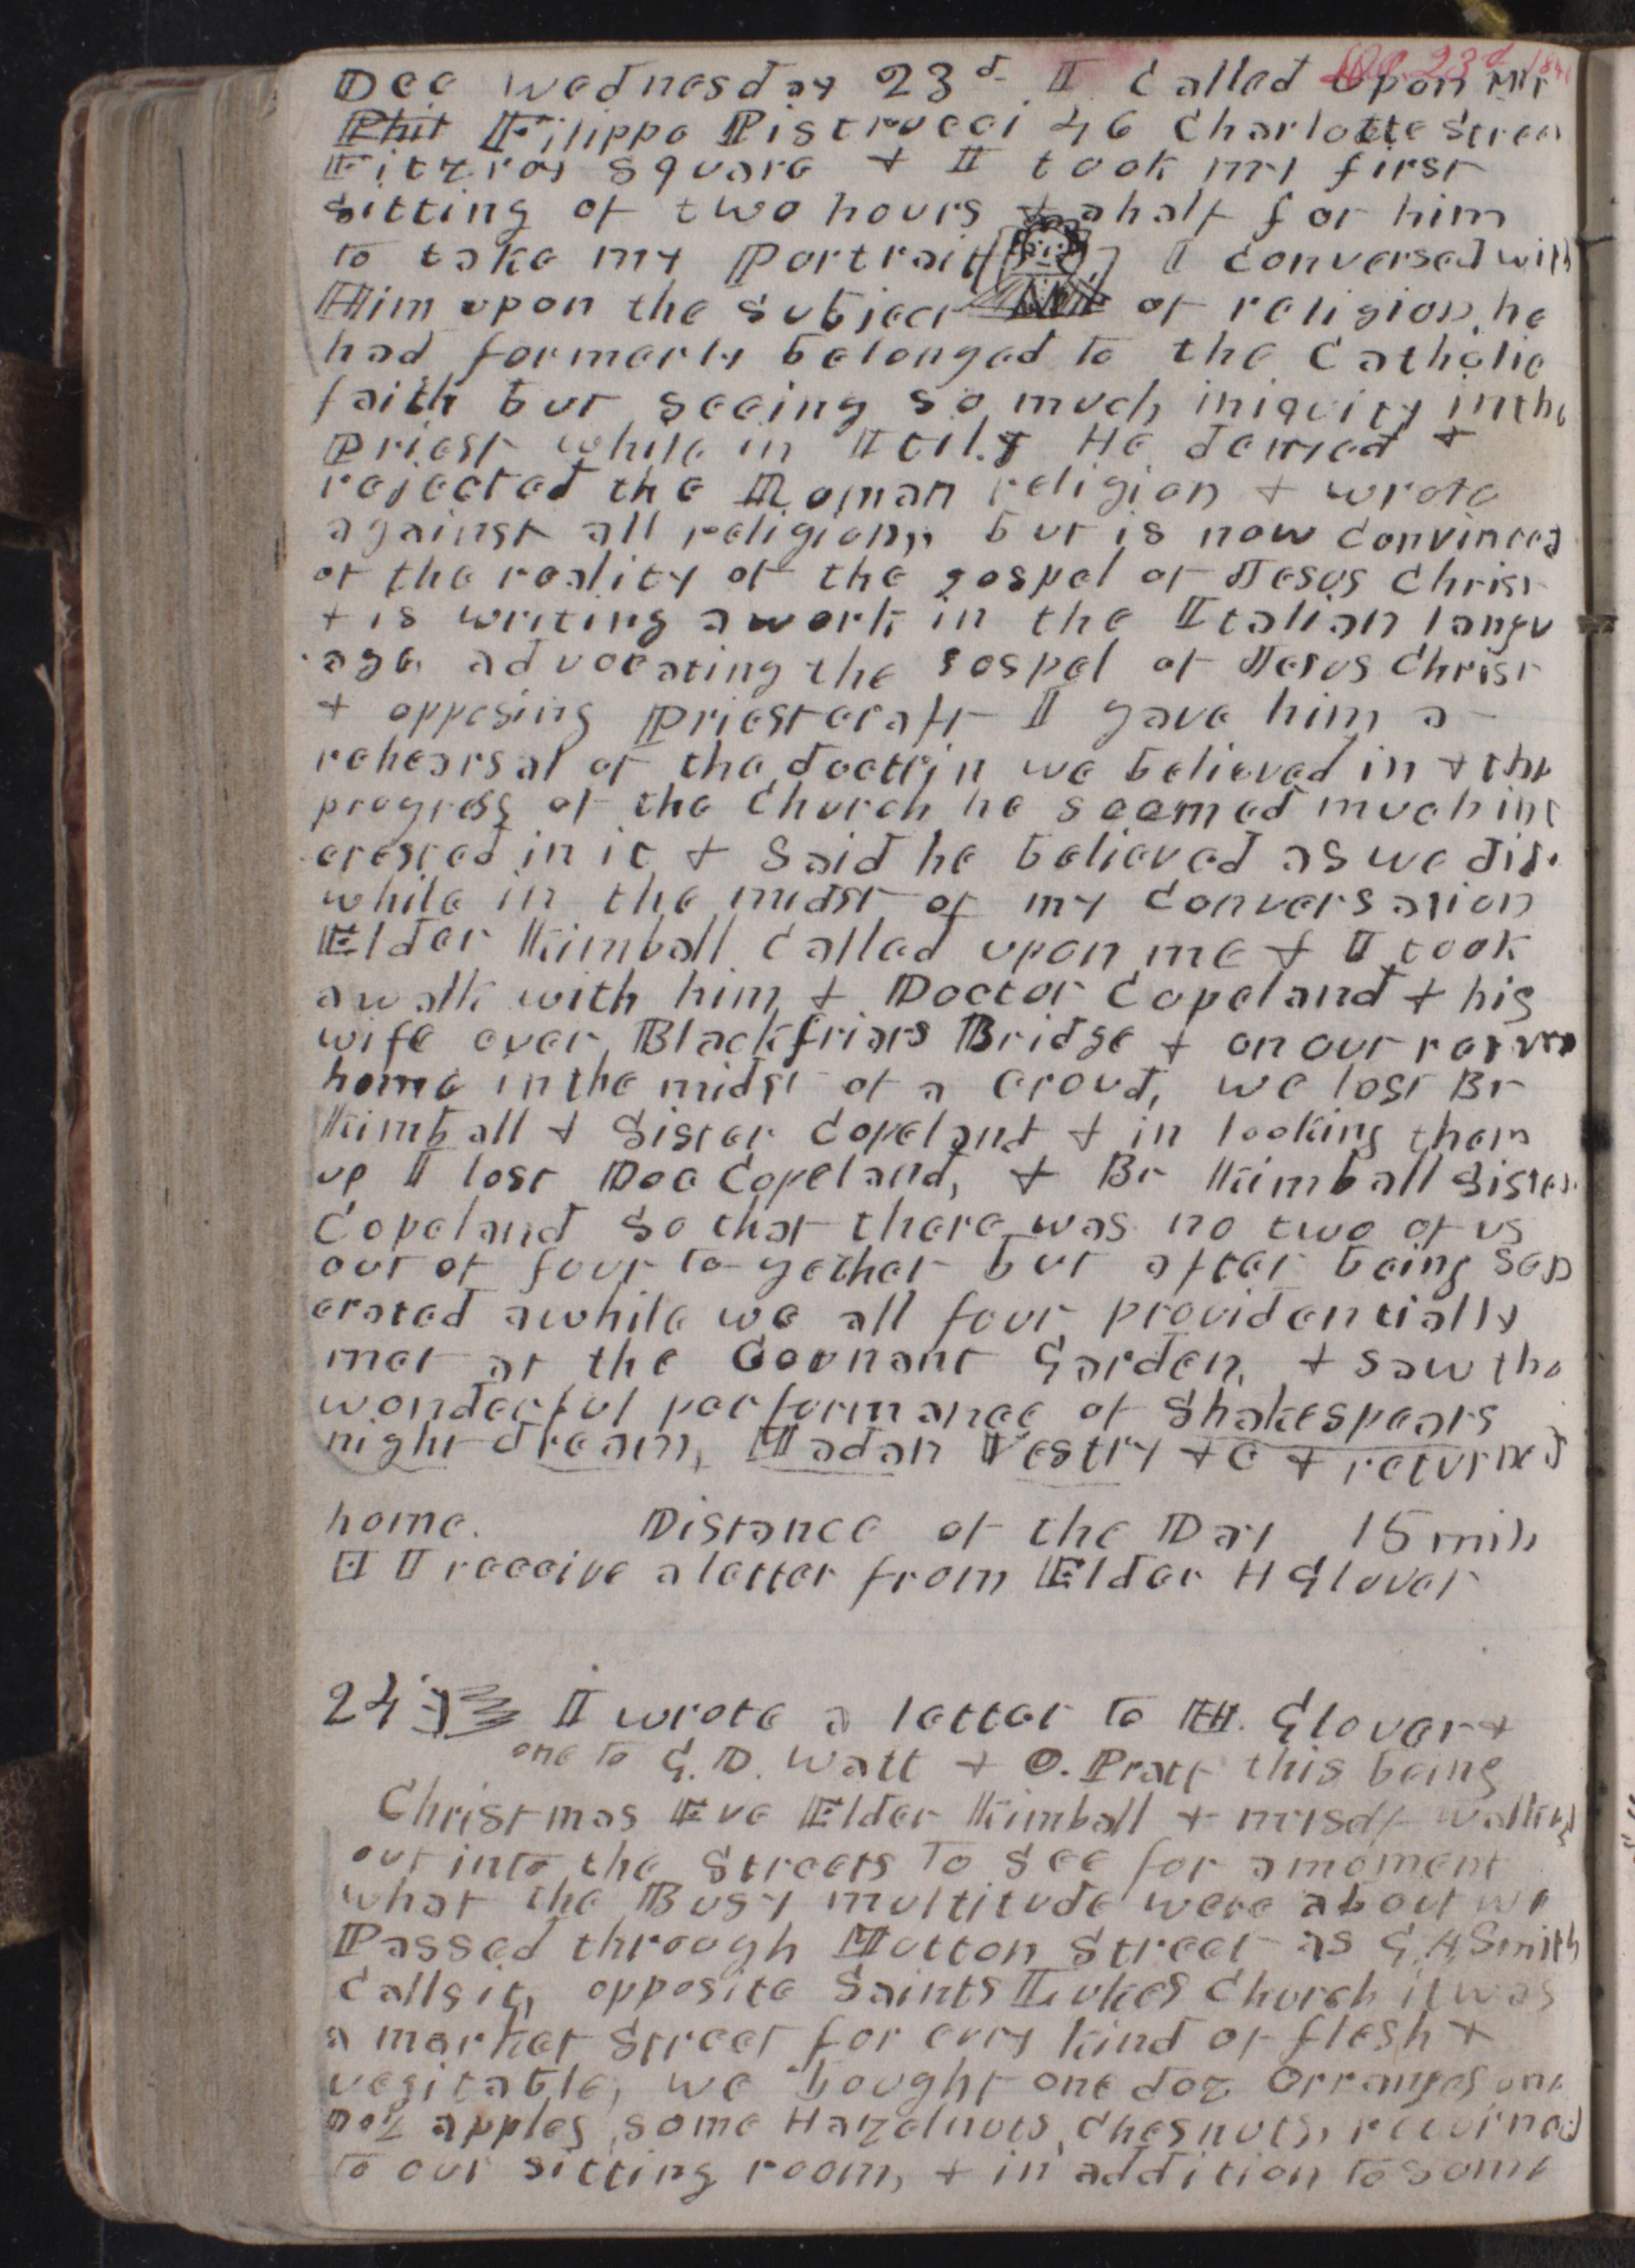 Dec 23d 1840
Dec Wednesday 23d I Called upon Mr
Phil Filippo Pistrucci 46 Charlotte Street
Fitzroy Square & I took my first
sitting of two hours & a half for him
to take my Portrait I conversed with
Him upon the subject of religion, he
had formerly belonged to the Catholic
faith but seeing so much iniquity in the
Priest while in Itily He denied &
rejected the Roman religion & wrote
against all religions, but is now convinced
of the reality of the gospel of Jesus Christ
& is writing a work in the Italian langu
age advocating the gospel of Jesus Christ
& opposing Priestcraft I gave him a
rehearsal of the doctrin we believed in & the
progress of the Church he seemed much int
erested in it & said he believed as we did.
while in the midst of my conversation
Elder Kimball called upon me & I took
a walk with him & Doctor Copeland & his
wife over Blackfriars Bridge & on our return
home in the midst of a croud, we lost Br
Kimball & Sister Copeland & in looking them
up I lost Doc Copeland, & Br Kimball Sister
Copeland so that there was no two of us
out of four to-gether but after being sep
erated awhile we all four providentially
met at the Covnant Garden, & saw the
wonderful performance of Shakespears
night dream, Madan Vestry &c & returned
home. Distance of the Day 15 mils
I receive a letter from Elder H Glover
24 I wrote a letter to H. Glover &
one to G. D. Watt & O. Pratt this being
Christmas Eve Elder Kimball & myself walked
out into the Streets to see for a moment
what the Busy multitude were about we
Passed through Mutton Street as G. A. Smith
calls it, opposite Saints Lukes Church it was
a market Street for evry kind of flesh &
vegitable, we bought one doz Orranges one
doz apples, some Hazelnuts, Chesnuts, returned
to our sitting room, & in addition to some